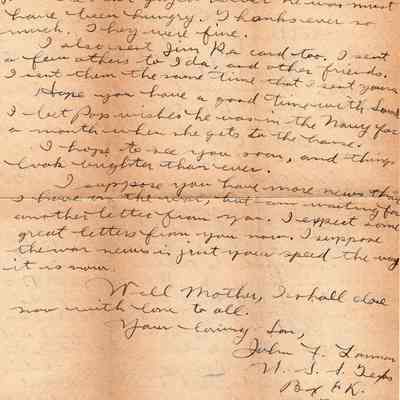 have been hungry. Thanks ever so
much. They were fine.
I also sent Jim R a card too. I sent
a few others to Ida, and other friends.
I sent them the same time that I sent yours
Hope you have a good time with
I bet Pop wishes he was in the Navy for
a month when she gets to the house.
I hope to see you soon, and things
look brighter than ever.
I suppose you have more news than
I have on the war, but am waiting for
another letter from you. I expect some
great letters from you now. I suppose
the war news is just your speed the way
it is now.
Well Mother, I shall close
now with love to all.
Your loving Son,
John F.
U.S.S. Texas
Box F K.